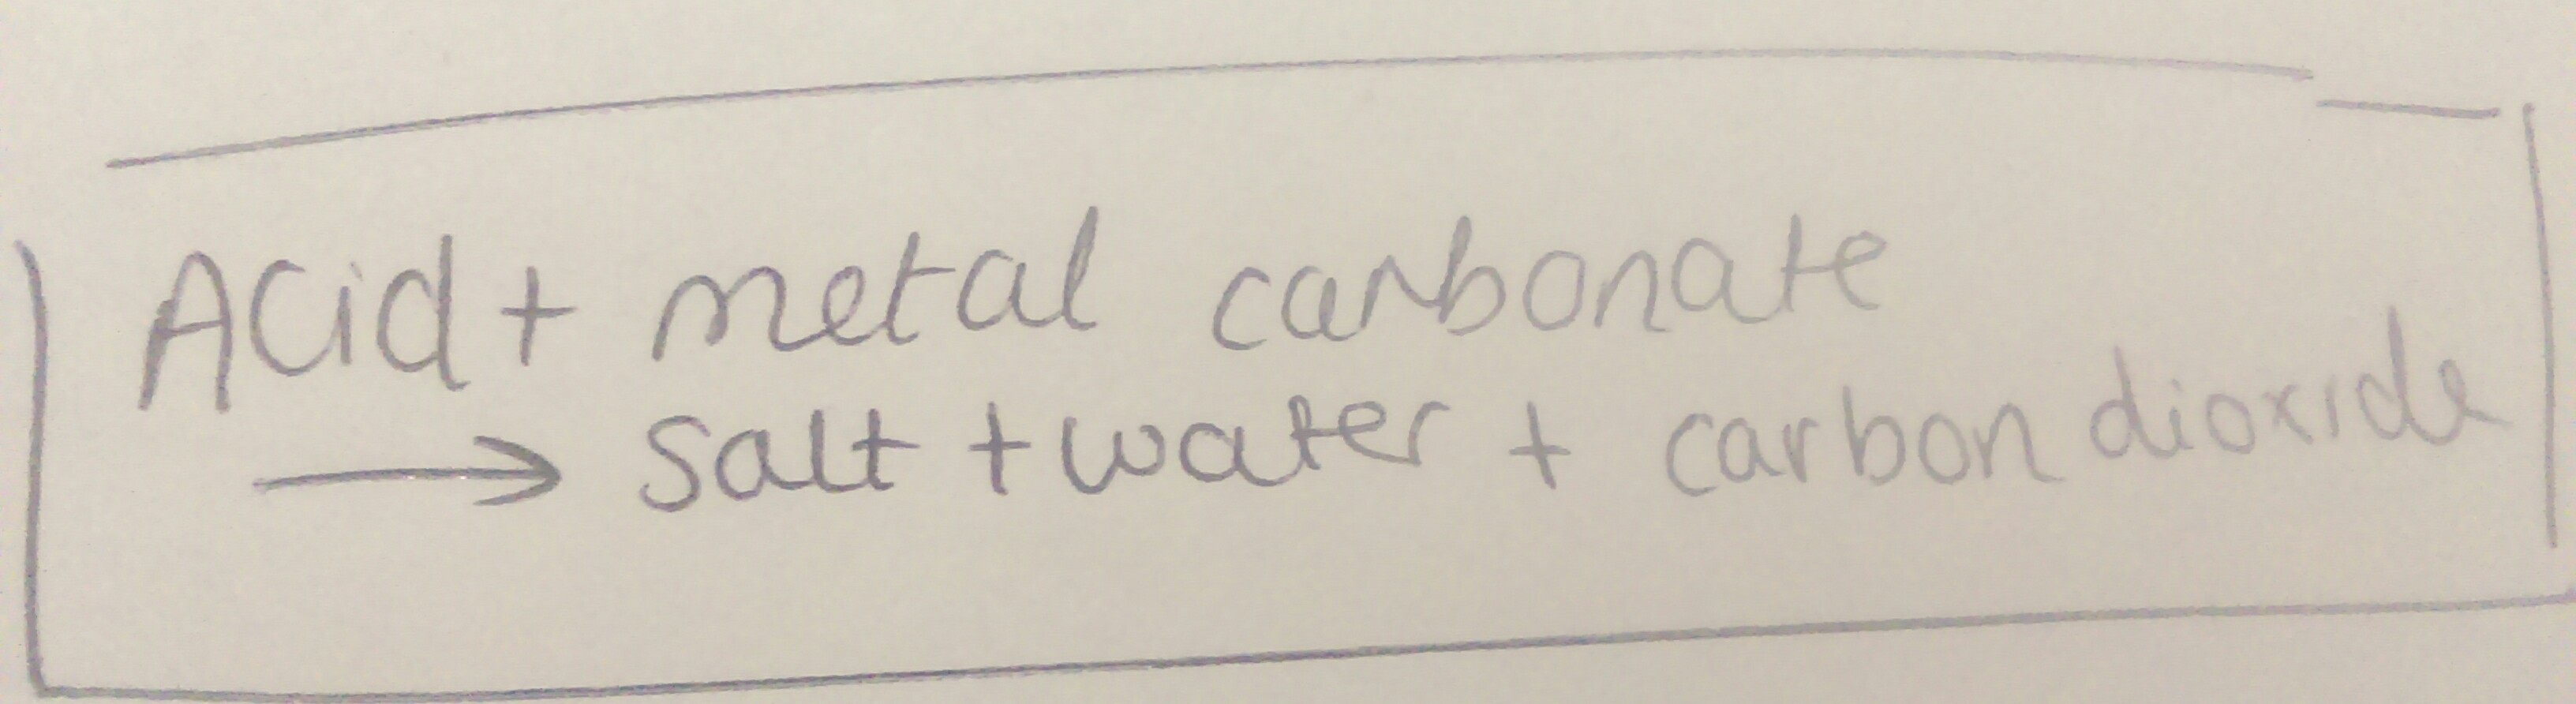 Acid + metal carbonate
→ salt + water + carbon dioxide